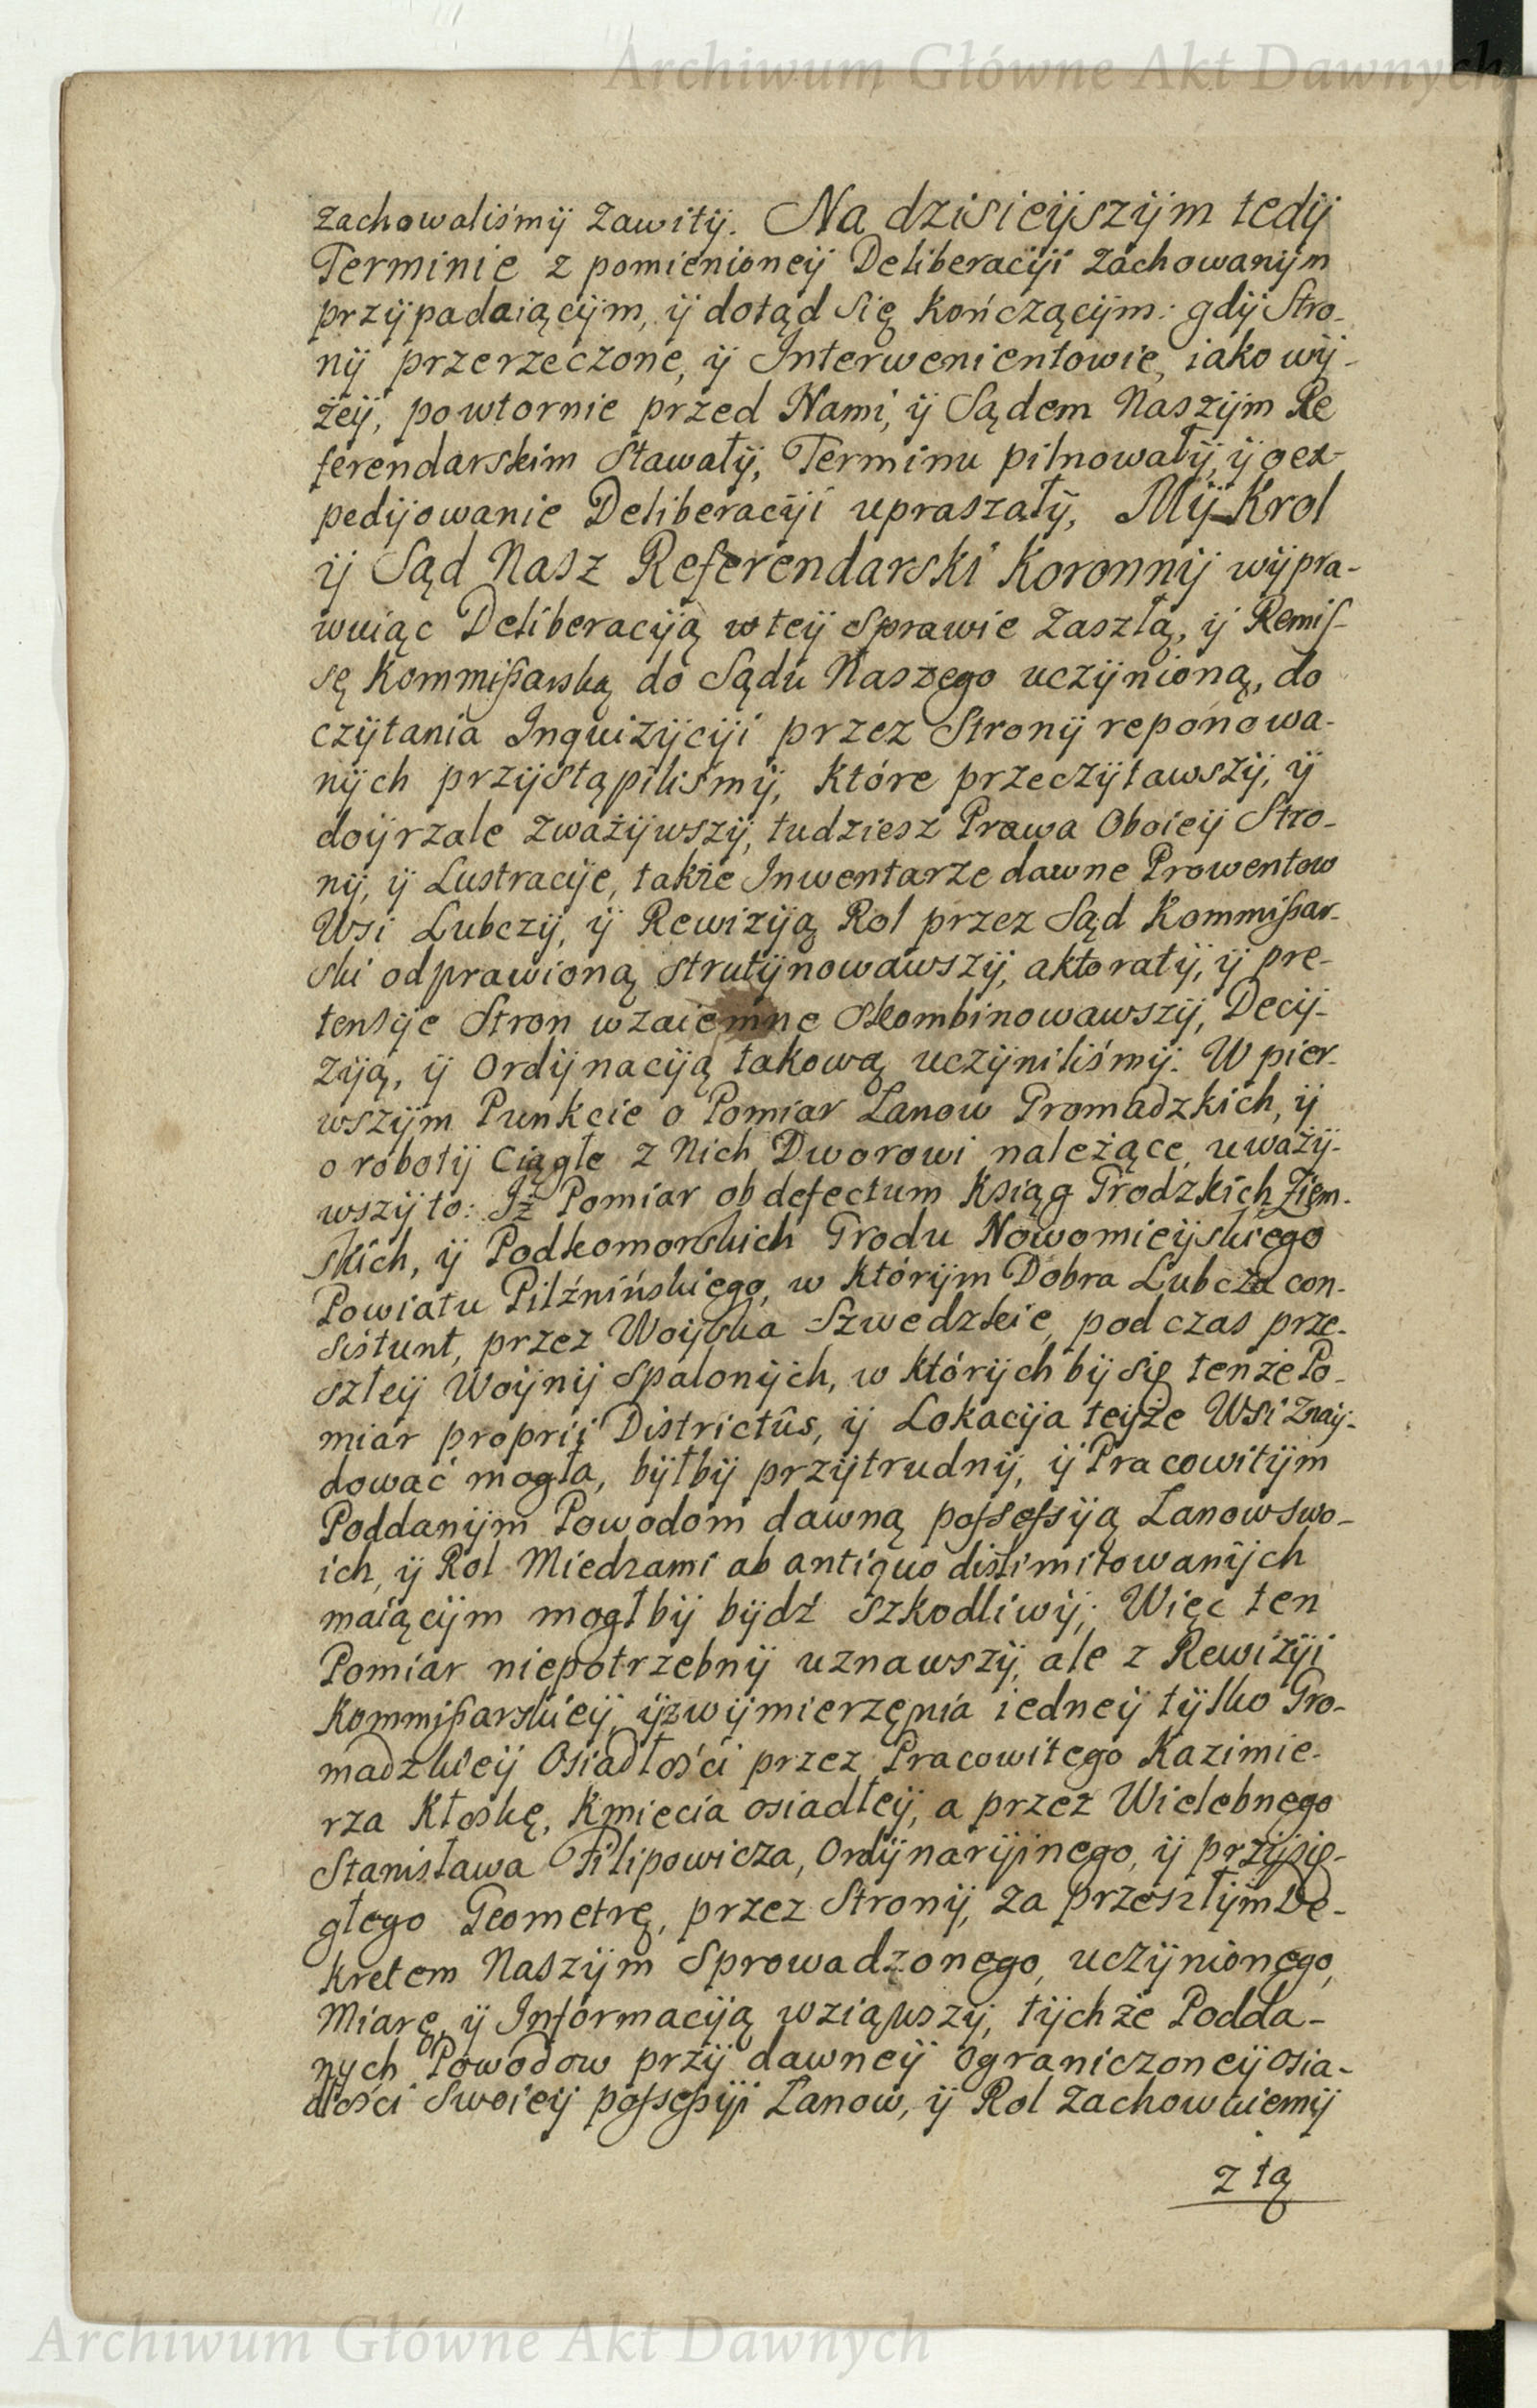 Archiwum Główne Akt Dawnych
zachowaliśmÿ zawitÿ. Na dzisieÿszÿm tedÿ
Terminie z pomienioneÿ Deliberacÿi zachowanÿm
przÿpadaiącÿm, ÿ dotąd się kończącÿm: gdÿ Stro-
nÿ przerzeczone, ÿ Interwenientowie, iako wÿ-
żeÿ, powtornie przed Nami, ÿ Sądem Naszÿm Re
ferendarskim stawałÿ, Terminu pilnowałÿ, ÿ o ex-
pedÿowanie Deliberacÿi upraszałÿ, Mÿ Krol
ÿ Sąd Nasz Referendarski Koronnÿ wÿpra-
wuiąc Deliberacÿą w teÿ Sprawie zaszłą, ÿ Remiſ-
sę Kommißarską do Sądu Naszego uczÿnioną, do
czÿtania Inquizÿcÿi przez Stronÿ reponowa-
nÿch przÿstąpiliśmÿ, które przeczÿtawszÿ, ÿ
doÿrzale zważÿwszÿ, tudziesz Prawa Oboieÿ Stro-
nÿ, ÿ Lustracÿe, także Inwentarze dawne Prowentow
Wsi Lubczÿ, ÿ Rewizÿą Rol przez Sąd Kommißar-
ski odprawioną strutÿnowawszÿ, aktoratÿ, ÿ pre-
tensÿe Stron wzaiemne skombinowawszÿ, Decÿ-
zÿą, ÿ Ordÿnacÿą takową uczÿniliśmÿ. W pier-
wszÿm Punkcie o Pomiar Lanow Gromadzkich, ÿ
o robotÿ ciągłe z Nich Dworowi należące, uważÿ-
wszÿ to: Iż Pomiar ob defectum Ksiąg Grodzkich Ziem-
skich, ÿ Podkomorskich Grodu Nowomieÿskiego
Powiatu Pilźnińskiego, w którÿm Dobra Lubcza con-
sistunt, przez Woÿska Szwedzkie, podczas prze-
szłeÿ Woÿnÿ spalonÿch, w którÿch bÿ się tenże Po-
miar proprÿ Districtûs, ÿ Lokacÿa teÿże Wsi znaÿ-
dować mogła, bÿłbÿ przÿtrudnÿ, ÿ Pracowitÿm
Poddanÿm Powodom dawną poſseſsÿą Lanow swo-
ich, ÿ Rol Miedzami ab antiquo distimitowanÿch
maiącÿm mogłbÿ bÿdź szkodliwÿ; Więc ten
Pomiar niepotrzebnÿ uznawszÿ, ale z Rewizÿi
Kommißarskieÿ, ÿ z wÿmierzęnia iedneÿ tÿlko Gro-
madzkieÿ Osiadłości przez Pracowitego Kazimie-
rza Kłoskę, Kmiecia osiadłeÿ, a przez Wielebnego
Stanisława Filipowicza, Ordÿnarÿinego, ÿ przÿsię-
głego Geometrę, przez Stronÿ, za przeszłÿm De-
kretem Naszÿm Sprowadzonego, uczÿnionęgo,
Miarę, ÿ Informacÿą wziąwszÿ, tÿchże Podda-
nych Powodow przÿ dawneÿ ograniczoneÿ osia-
dłości swoieÿ poſseßÿi Lanow, ÿ Rol zachowuiemÿ
z tą
Archiwum Główne Akt Dawnych